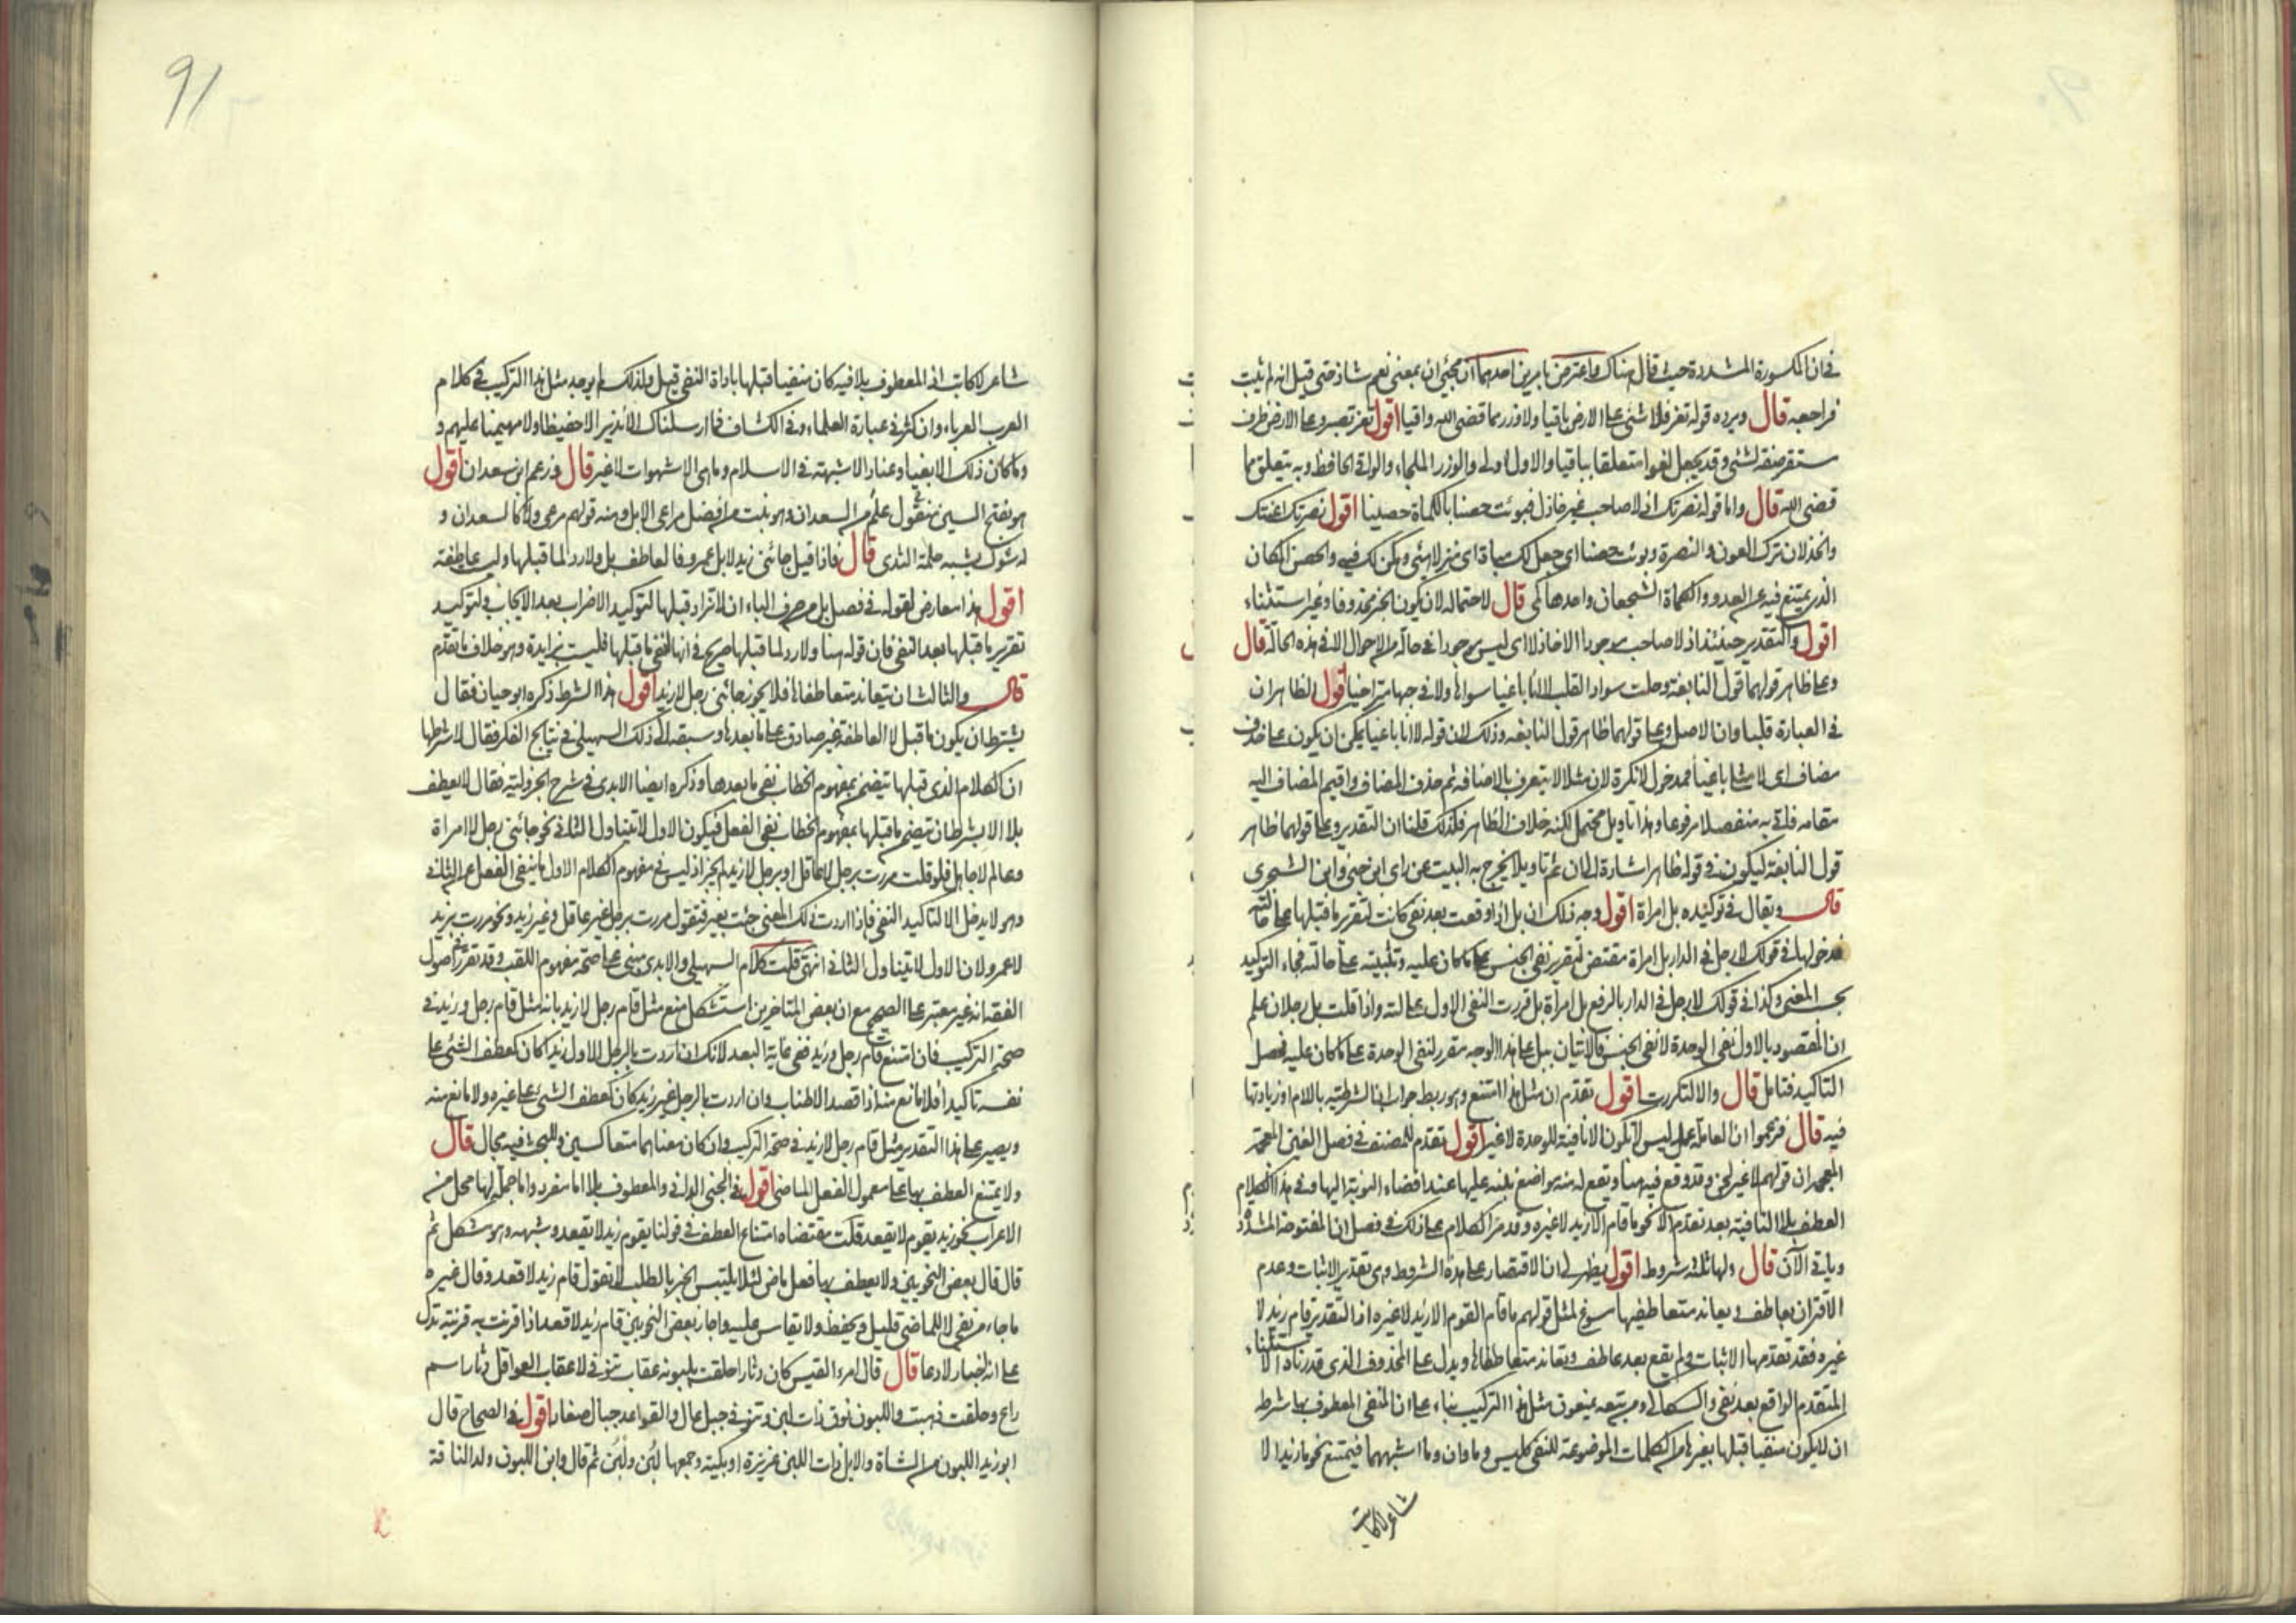 في ان المكسورة المشددة حيث قال هناك واعترض بامرين احدهما ان مجيئ ان بمعنى نعم شاذ حتى قيل انه لم يثبت
فراجعه قال ويرده قوله تعز فلا شئ على الارض باقيا ولا وزر مما قضى الله واقيا اقول تعز تصبر وعلى الارض ظرف
مستقر صفة لشئ وقد يجعل لغوا متعلقا بباقيا والاول اولى والوزر الملجاء والواقي الحافظ وبه يتعلق مما
قضى الله قال واما قوله نصرتك اذ لا صاحب غير خاذل فبوئت حصنا بالكماة حصينا اقول نصرتك اعنتك
والخذلان ترك العون والنصرة وبوئت حصنا اي جعل لك مباة اي منزلا هيئ ومكن لك فيه والحصن المكان
الذي يمتنع فيه من العدو والكماة الشجعان واحدها كمي قال لاحتماله لان يكون الخبر محذوفا وغير استثناء
اقول والتقدير حينئذ اذ لا صاحب موجودا الا خاذلا اي ليس موجودا في حالة من الاحوال الا في هذه الحالة قال
وعلى ظاهر قولهما قول النابغة وحلت سواد القلب لا انا باغيا سواها ولا في حبها متراخيا اقول الظاهر ان
في العبارة قلبا وان الاصل وعلى قولهما ظاهر قول النابغة وذلك لان قوله لا انا باغيا يمكن ان يكون على حذف
مضاف اي لا مثلي باغيا فمدخول لا نكرة لان مثلا لا يتعرف بالاضافة ثم حذف المضاف واقيم المضاف اليه
مقامه فاتي به منفصلا مرفوعا وهذا تاويل محتمل لكنه خلاف الظاهر فلذلك قلنا ان التقدير وعلى قولهما ظاهر
قول النابغة ليكون في قوله ظاهر اشارة الى ان ثم تاويلا يخرج به البيت عن راي ابن جني وابن الشجري
قال ويقال في توكيده بل امراة اقول وجه ذلك ان بل اذا وقعت بعد نفي كانت لتقرير ما قبلها على حالته
فدخولها في قولك لا رجل في الدار بل امراة مقتض لتقرير نفي الجنس على ما كان عليه وتثبيته على حالته فجاء التوكيد
بحسب المعنى وكذا في قولك لا رجل في الدار بالرفع بل امراة بل قررت النفي الاول على حالته واذا قلت بل رجلان علم
ان المقصود بالاول نفي الوحدة لا نفي الجنس فالاتيان ببل على هذا الوجه مقرر لنفي الوحدة على ما كان عليه فحصل
التاكيد فتامل قال والا لتكررت اقول تقدم ان مثل هذا ممتنع وهو ربط جواب ان الشرطية باللام او زيادتها
فيه قال فزعموا ان العاملة عمل ليس لا تكون الا نافية للوحدة لا غير اقول تقدم للمصنف في فصل الغين المعجمة
ان قولهم لا غير لحن وقد وقع فيه هنا ويقع له منه مواضع ننبه عليها عند افضاء النوبة اليها وفي هذا الكلام
العطف بلا النافية بعد تقدم الا نحو ما قام الا زيد لا غيره وقد مر الكلام على ذلك في فصل ان المفتوحة المشددة
وياتي الآن قال ولها ثلاثة شروط اقول يظهر لي ان الاقتصار على هذه الشروط وهي تقدير الاثبات وعدم
الاقتران بعاطف وبعاند متعاطفيها مسوغ لمثل قولهم ما قام القوم الا زيد لا غيره اذ التقدير قام زيد لا
غيره فقد تقدمها الاثبات ولم يقع بعد عاطف وتعاند متعاطفاها ويدل على المحذوف الذي قدرناه الاستثناء
المتقدم الواقع بعد نفي والسكاكي ومن تبعه يمنعون مثل هذا التركيب بناء على ان المنفي المعطوف بها شرطه
ان لا يكون منفيا قبلها بغيرها من الكلمات الموضوعة للنفي كليس وما وان وما اشبههما فيمتنع نحو ما زيد الا
شاعر لا كاتب
91
شاعر لا كاتب اذ المعطوف بلا فيه كان منفيا قبلها باداة النفي قيل ولذلك لم يوجد مثل هذا التركيب في كلام
العرب العرباء وان كثر في عبارة العلماء وفي الكشاف فما ارسلناك الا نذيرا لا حفيظا ولا مهيمنا عليهم و
وما كان ذلك الا بغيا وعنادا لا شبهة في الاسلام وما هي الا شهوات لا غير قال فزعم ابن سعدان اقول
هو بفتح السين منقول علم من السعدان وهو نبت من افضل مراعي الابل ومنه قولهم مرعى ولا كالسعدان و
له شوك يشبه حلمة الثدي قال فاذا قيل جائني زيد لا بل عمرو فالعاطف بل ولا رد لما قبلها وليست عاطفة
اقول هذا معارض لقوله في فصل بل من حرف الباء ان لا تزاد قبلها لتوكيد الاضراب بعد الايجاب ولتوكيد
تقرير ما قبلها بعد النفي فان قوله هنا ولا رد لما قبلها صريح في انها لنفي ما قبلها فليست بزايدة وهو خلاف ما تقدم
قال والثالث ان يتعاند متعاطفاها فلا يجوز جائني رجل لا زيد اقول هذا الشرط ذكره ابو حيان فقال
يشترط ان يكون ما قبل لا العاطفة غير صادق على ما بعدها وسبقه الى ذلك السهيلي في نتايج الفكر فقال لا شرطها
ان الكلام الذي قبلها يتضمن بمفهوم الخطاب نفي ما بعدها وذكره ايضا الابدي في شرح الجزولية فقال لا يعطف
بلا الا بشرط ان يتضمن ما قبلها بمفهوم الخطاب نفي الفعل فيكون الاول لا يتناول الثاني نحو جائني رجل لا امراة
وعالم لا جاهل فلو قلت مررت برجل لا عاقل او برجل لا زيد لم يجز اذ ليس في مفهوم الكلام الاول ما ينفي الفعل عن الثاني
وهو لا يدخل الا لتاكيد النفي فاذا اردت ذلك المعنى جئت بغير فتقول مررت برجل غير عاقل وغير زيد ونحو مررت بزيد
لا عمرو لان الاول لا يتناول الثاني انتهى قلت كلام السهيلي والابدي مبني على صحة مفهوم اللقب وقد تقرر في اصول
الفقه انه غير معتبر على الصحيح مع ان بعض المتاخرين استشكل منع مثل قام رجل لا زيد بانه مثل قام رجل وزيد في
صحة التركيب فان امتنع قام رجل وزيد ففي غاية البعد لانك ان اردت بالرجل الاول زيدا كان كعطف الشئ على
نفسه تاكيدا فلا مانع منه اذا قصد الاطناب وان اردت بالرجل غير زيد كان كعطف الشئ على غيره ولا مانع منه
ويصير على هذا التقدير مثل قام رجل لا زيد في صحة التركيب وان كان معناهما متعاكسين وللبحث فيه مجال قال
ولا يمتنع العطف بها على معمول الفعل الماضي اقول في الجنى الداني والمعطوف بلا اما مفرد واما جملة لها محل من
الاعراب نحو زيد يقوم لا يقعد قلت مقتضاه امتناع العطف في قولنا يقوم زيد لا يقعد وشبهه وهو مشكل ثم
قال قال بعض النحويين ولا يعطف بها فعل ماض لئلا يلتبس الخبر بالطلب لا تقول قام زيد لا قعد وقال غيره
ما جاء من نفي لا للماضي قليل يحفظ ولا يقاس عليه واجاز بعض النحويين قام زيد لا قعد اذا قرنت به قرينة تدل
على انه اخبار لا دعا قال قال امرء القيس كان دثارا حلقت بلبونه عقاب تنوفى لا عقاب القواعل دثار اسم
راع وحلقت ذهبت واللبون نوق ذات لبن وتنوفى جبل عال والقواعل جبال صغار اقول في الصحاح قال
ابو زيد اللبون من الشاة والابل ذات اللبن غزيرة او بكيئة وجمعها لبن ولبن ثم قال وابن اللبون ولد الناقة